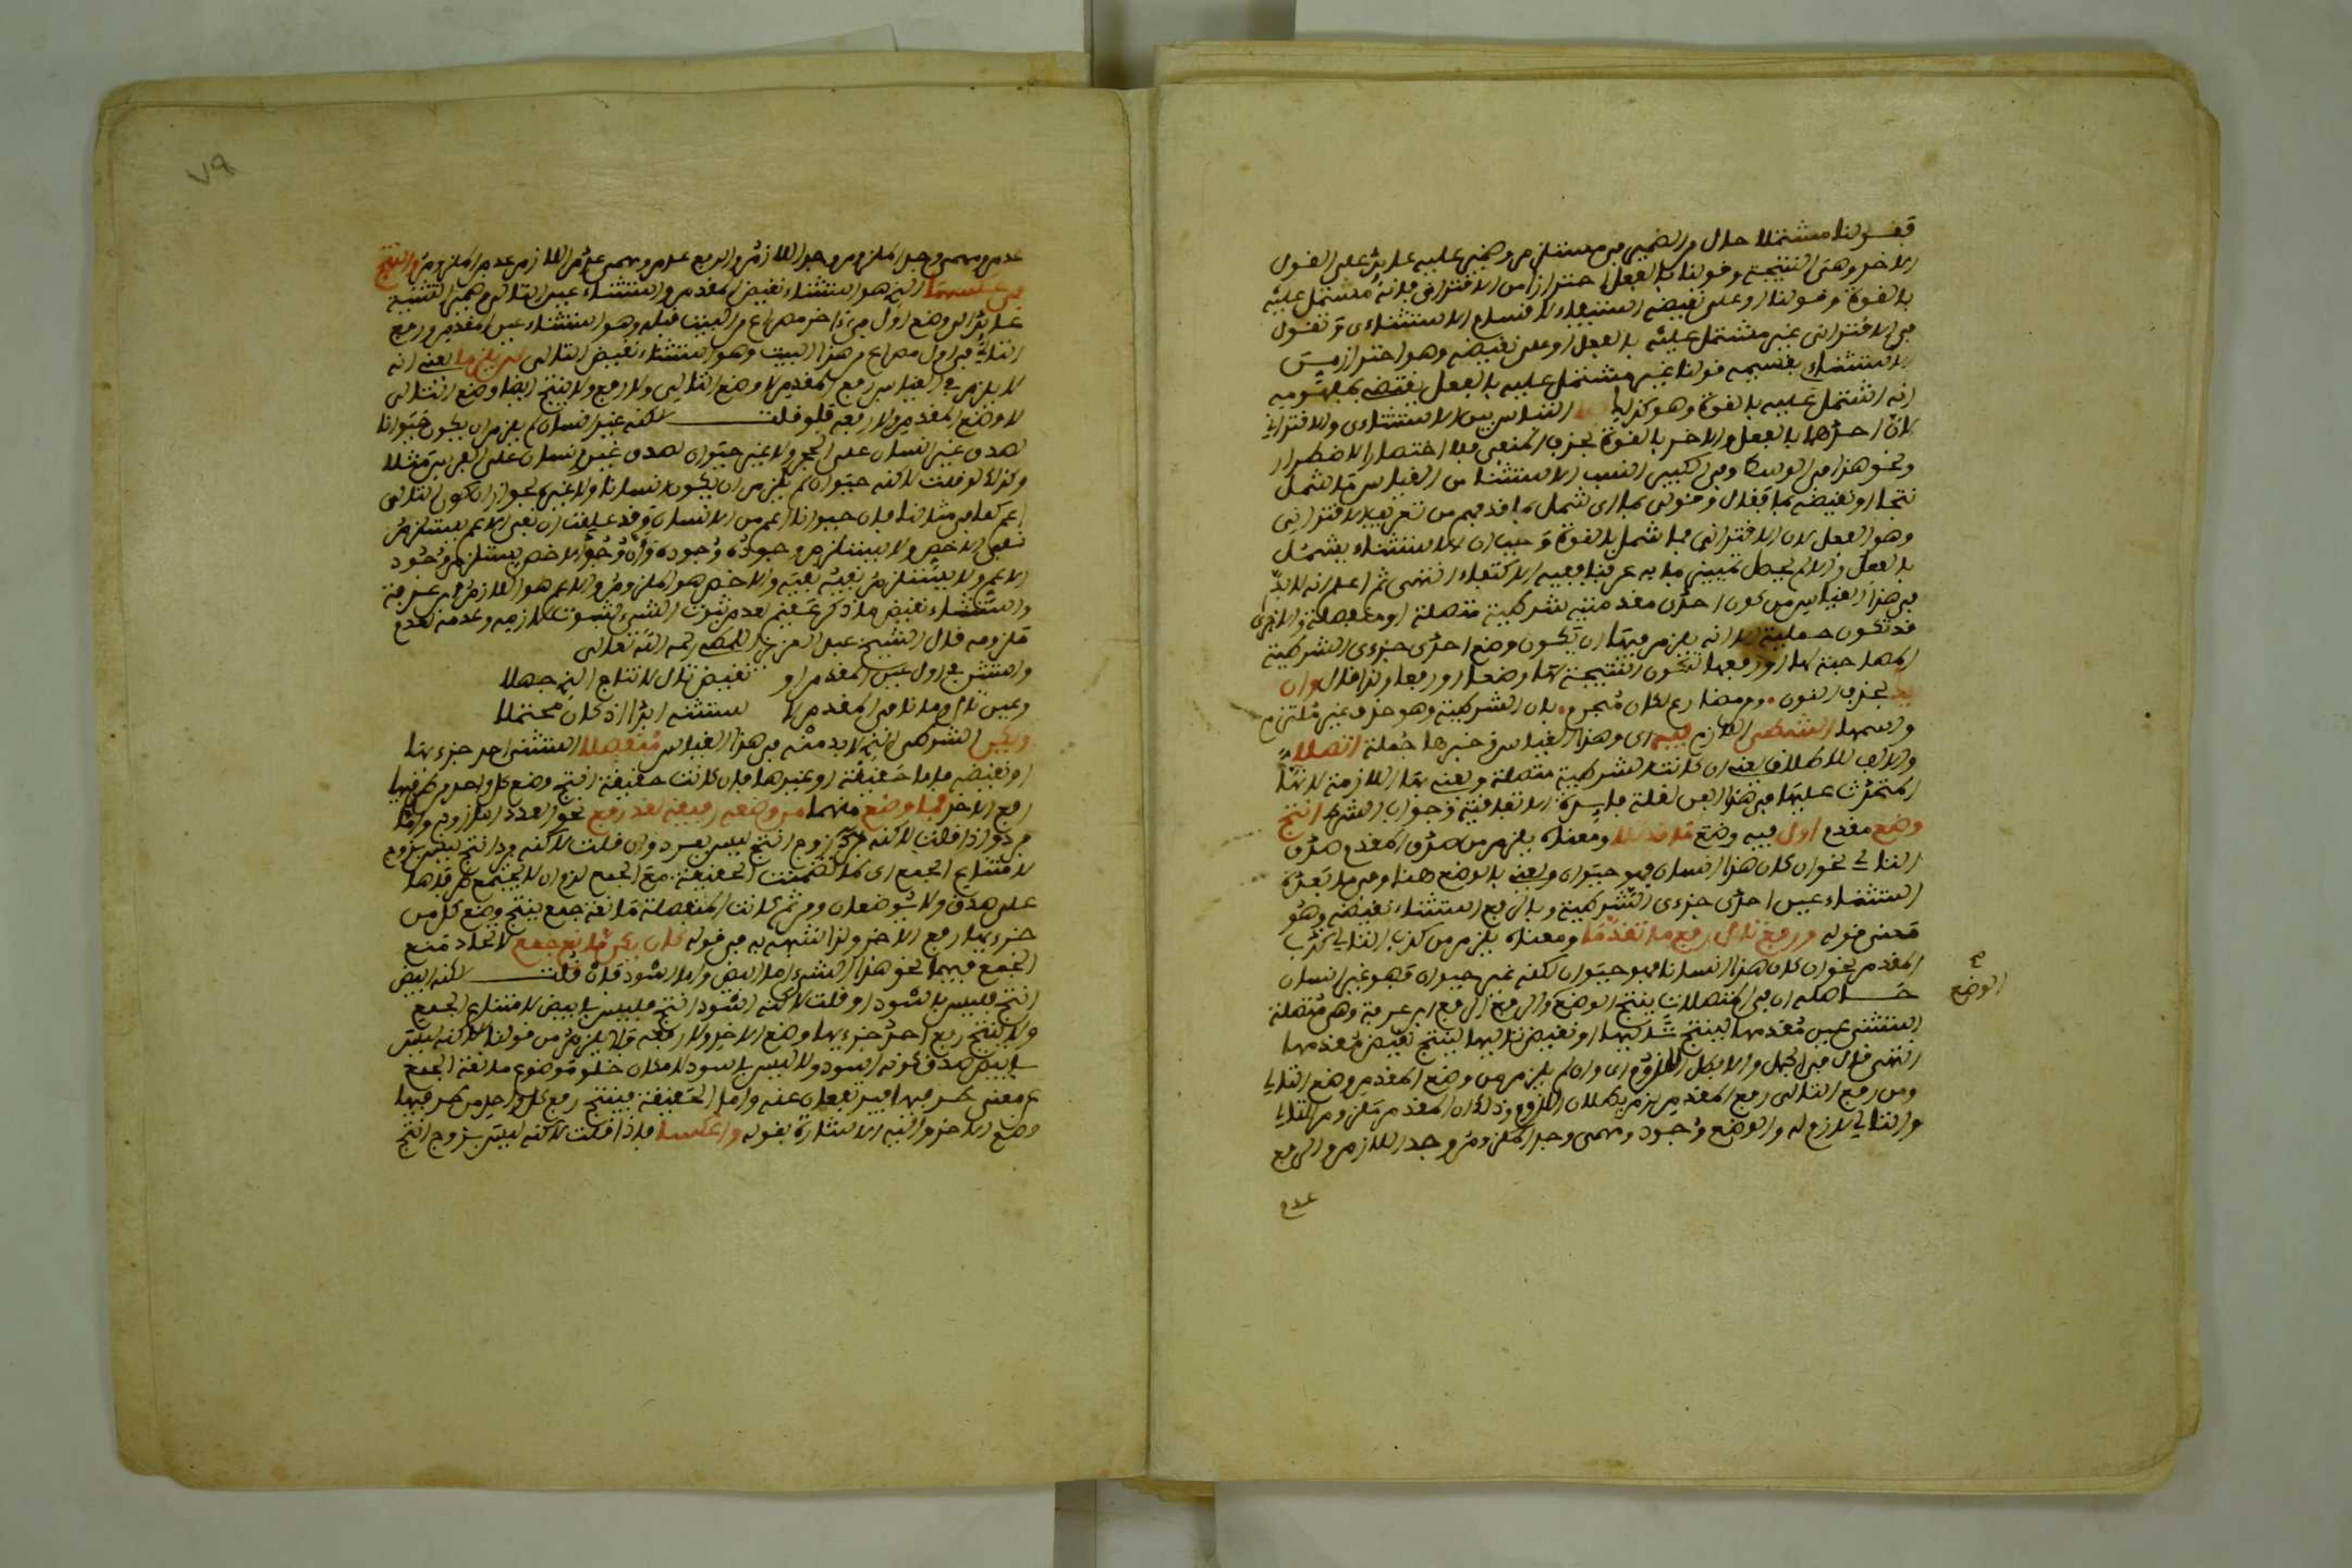 فقولنا مشتملا حال من الضمير في مستلزم وضمير عليه عايد على القول
الاخر وهي النتيجة وقولنا بالفعل احترازا من الاقتراني فانه مشتمل عليه
بالقوة وقولنا او على نقيضه استيفاء لاقسام الاستثنائي وتقول
في الاقتراني غير مشتمل عليه بالفعل او على نقيضه وهو احتراز من
الاستثنائي بقسميه قولنا غير مشتمل عليه بالفعل يقتضي بمفهومه
انه اشتمل عليه بالقوة وهو كذلك التباس بين الاستثنائي والاقتراني
لان احدها بالفعل والاخر بالقوة
ونحو هذا في الوسط وفي الكبير
نتجا او نقيضه بما فقال وقولي بما اي شمل ما قد فهم من تعريف الاقتراني
وهو الفعل لان الاقتراني مما شمل بالقوة وحيث ان الاستثناء يشمل
بالفعل
في هذا القياس من كون احدى مقدمتيه شرطية متصلة او منفصلة والاخرى
قد تكون حملية الا انه يلزم فيها ان تكون وضع احدى جزءي الشرطية
المصاحبة لها او رفعها لتكون النتيجة لها وضعا او رفعا ولذا قال وان
يك بحذف النون من مضارع كان مجزوم بان الشرطية وهو حذف غير ملتزم
واسمها الشرطي اللازم فيه اي وهذا القياس وخبرها جملة اتصلا
والالف للاطلاق يعني ان كانت الشرطية متصلة ويعني بها اللزومية لانها
المتحدث عليها في هذا الفن لقلة فايدة الاتفاقية وجواب الشرط انتج
وضع مقدم اول فيه وضع تال ومعناه يلزم من صدق المقدم صدق
التالي نحو ان كان هذا انسان فهو حيوان ويعني بالوضع هنا وفي ما بعده
استثناء عين احدى جزءي الشرطية وبالرفع استثناء نقيضه وهو
معنى قوله ورفع تال رفع ما تقدما ومعناه يلزم من كذب التالي كذب
المقدم نحو ان كان هذا انسانا فهو حيوان لكنه غير حيوان فهو غير انسان
حاصله ان في المتصلات ينتج الوضع والرفع الرفع ابن عرفة وهي متصلة
الوضع
استثني عين مقدمها لينتج تاليها او نقيض تاليها لينتج نقيض مقدمها
انتهى قال في الجمل والا بطل اللزوم اي وان لم يلزم من وضع المقدم وضع التالي
ومن رفع التالي رفع المقدم لزم بطلان اللزوم وذلك ان المقدم ملزوم التالي
والتالي لازم له والوضع وجود ومهما وجد الملزوم وجد اللازم والرفع
عدم
٧٩
عدم ومهما وجد الملزوم وجد اللازم والرفع عدم ومهما عدم اللازم عدم الملزوم والنتج
في عكسهما الذي هو استثناء نقيض المقدم واستثناء عين التالي وضمير التثنية
عايد الى وضع اول في اخر مصراع من البيت قبله وهو استثناء عين المقدم ورفع
التالي في اول مصراع من هذا البيت وهو استثناء نقيض التالي لن يلزما يعني انه
لا يلزم في القياس رفع المقدم لا وضع التالي ولا رفع ولا ينتج ايضا وضع التالي
لا وضع المقدم ولا رفعه فلو قلت لكنه غير انسان لم يلزم ان يكون حيوانا
لصدق غير انسان على الحجر ولا غير حيوان لصدق غير انسان على الفرس مثلا
وكذلك لو قلت لكنه حيوان لم يلزم ان يكون انسانا ولا غيره لجواز ان يكون التالي
اعم كما في مثالنا فان حيوانا اعم من الانسان وقد علمت ان نفي الاعم يستلزم
نفي الاخص ولا يستلزم وجوده وجوده وان وجود الاخص يستلزم وجود
الاعم ولا يستلزم نفيه نفيه والاخص هو الملزوم والاعم هو اللازم ابن عرفة
واستثناء نقيض ما ذكر عقيم لعدم ثبوت الشيء لثبوت لازمه وعدمه لعدم
ملزومه قال الشيخ عبد العزيز رحمه الله تعالى
واستثن في اول عين المقدم او نقيض تال لانتاج الذي جهلا
وعين تال وما نافى المقدم لا يستثنى ابدا اذ كان محتملا
ويكن الشرطي الذي لا بد منه في هذا القياس منفصلا استثني احد جزءيها
او نقيضه فاما حقيقة او غيرها فان كانت حقيقة انتج وضع كل واحد من طرفيها
رفع الاخر فما وضع منهما من وضعه رفيقه لقد رفع نحو العدد اما زوج واما
فرد فاذا قلت لكنه زوج انتج ليس بفرد وان قلت لكنه فرد انتج ليس بزوج
لامتناع الجمع اي لما تضمنت الحقيقة منع الجمع لزم ان لا يجتمع طرفاها
على صدق ولا يوضعان ومن ثم كانت المنفصلة مانعة جمع ينتج وضع كل من
جزءيها رفع الاخر ولذا اشبهه به في قوله كان يكن مانع جمع لاتحاد منع
الجمع فيهما نحو هذا الشيء اما ابيض واما اسود فان قلت لكنه ابيض
انتج فليس باسود او قلت لكنه اسود انتج فليس بابيض لامتناع الجمع
ولا ينتج رفع احد جزءيها وضع الاخر ولا رفعه فلا يلزم من قولنا لكنه ليس
بابيض صدق كونه اسود ولا ليس باسود لامكان خلو موضوع مانعة الجمع
عن معنى طرفيها فيرتفعان عنه واما الحقيقة فينتج رفع كل واحد من طرفيها
وضع الاخر واليه الاشارة بقوله واعكسا فاذا قلت لكنه ليس بزوج انتج